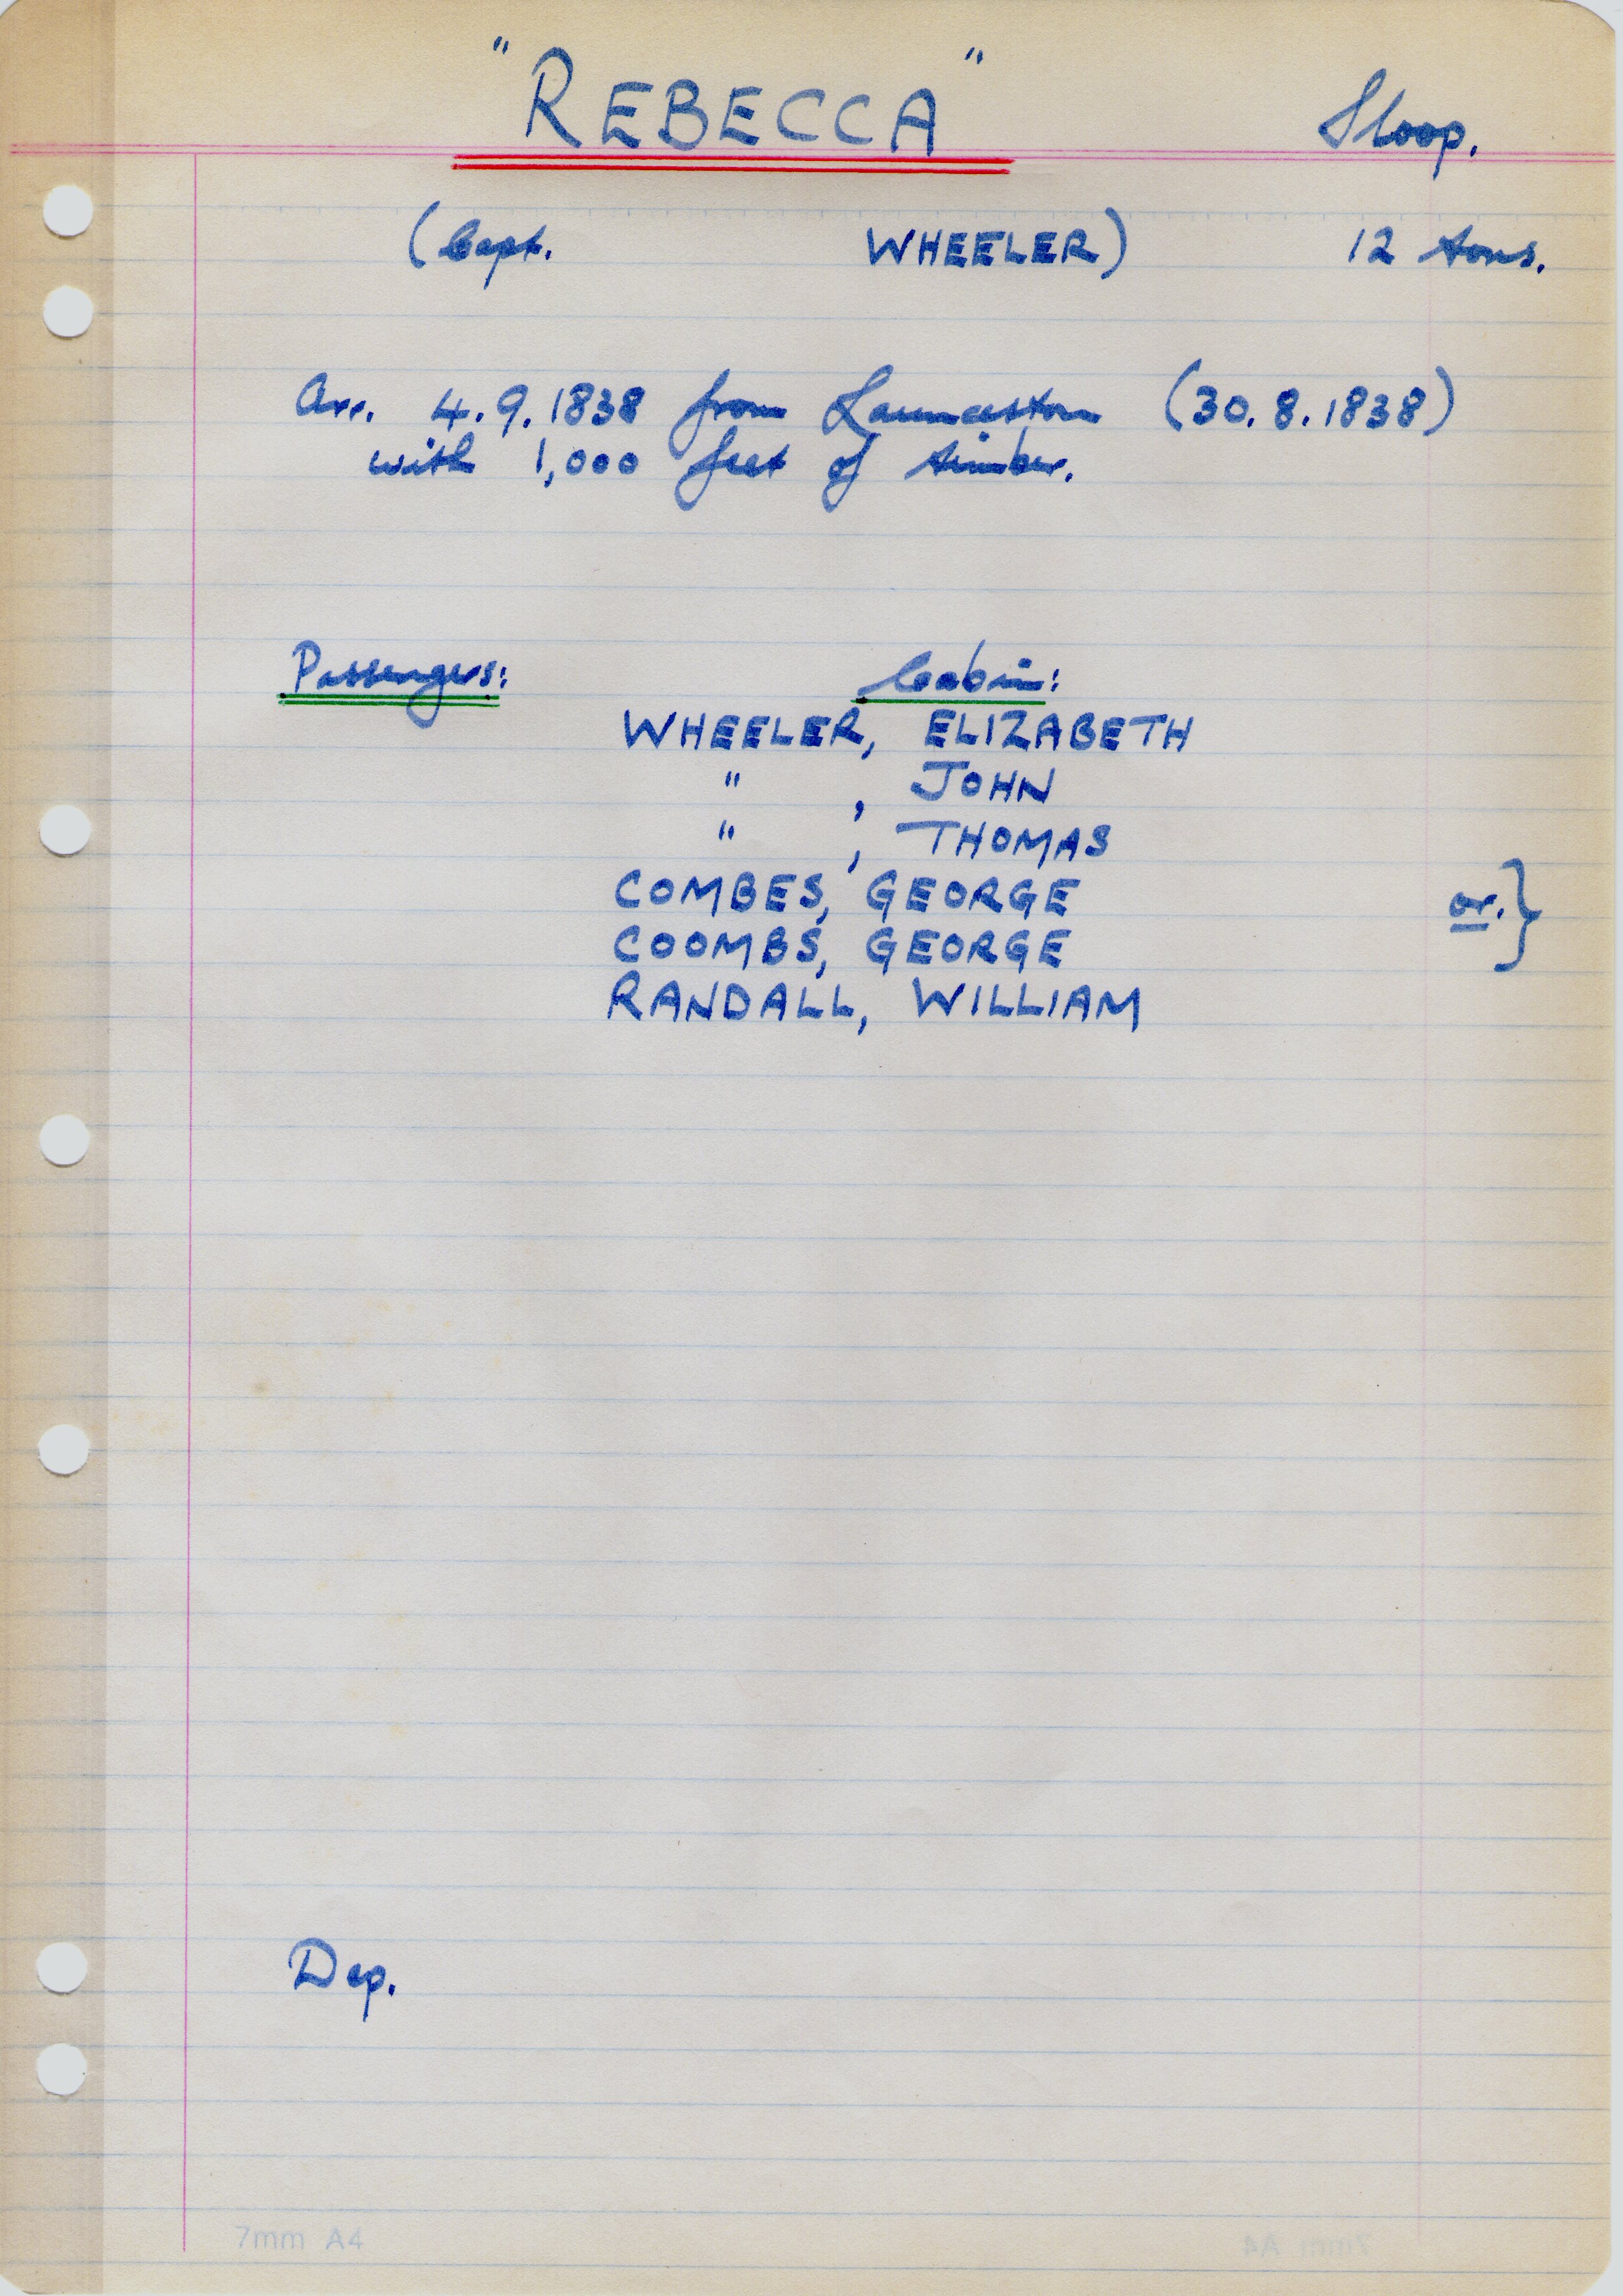 "REBECCA" Sloop.
(Capt. WHEELER) 12 tons.
Arr. 4.9.1838 from Launceston (30.8.1838)
with 1,000 feet of timber.
Passengers: Cabin:
WHEELER, ELIZABETH
" , JOHN
" , THOMAS
COMBES, GEORGE or. }
COOMBS, GEORGE
RANDALL, WILLIAM
Dep.
7mm A4